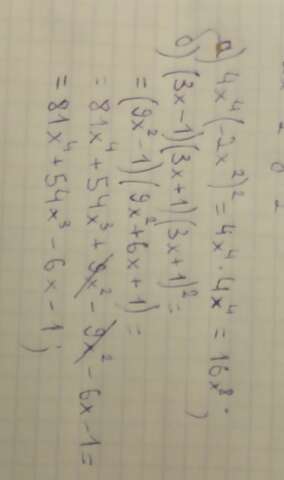 а) 4x⁴(-2x²)² = 4x⁴ · 4x⁴ = 16x⁸;
б) (3x-1)(3x+1)(3x+1)² =
= (9x²-1)(9x²+6x+1) =
= 81x⁴+54x³+9x²-9x²-6x-1 =
= 81x⁴+54x³-6x-1;